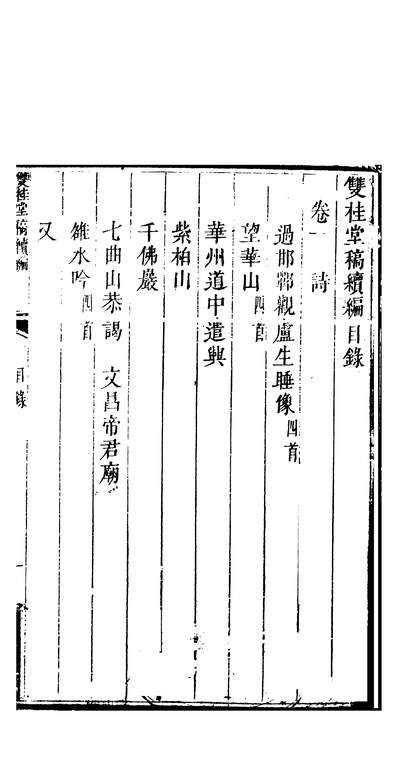 雙桂堂稿續編目錄
卷一　詩
過邯鄲觀盧生睡像四首
望華山四首
華州道中遣興
紫柏山
千佛巖
七曲山恭謁　文昌帝君廟
雒水吟四首
又
雙桂堂稿續編
目錄